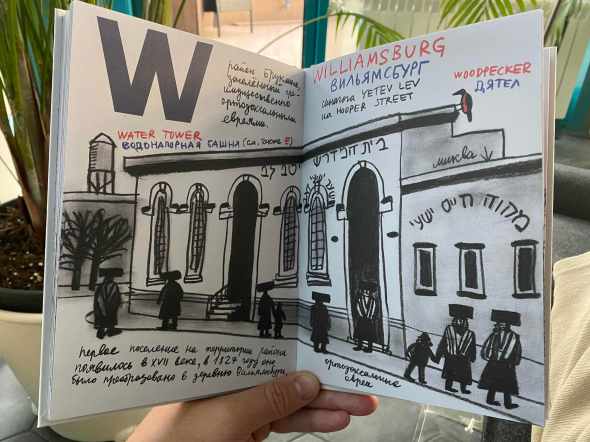 W
район Бруклина,
заселённый пре-
имущественно
ортодоксальными
евреями.
WATER TOWER
ВОДОНАПОРНАЯ БАШНЯ (см. также E)
WILLIAMSBURG
ВИЛЬЯМСБУРГ
синагога YETEV LEV
на HOOPER STREET
WOODPECKER
ДЯТЕЛ
миква
יטב לב
בית המדרש
מקוה חיים ישעי
первое поселение на территории района
появилось в XVII веке, в 1827 году оно
было преобразовано в деревню Вильямсбург.
ортодоксальные
евреи